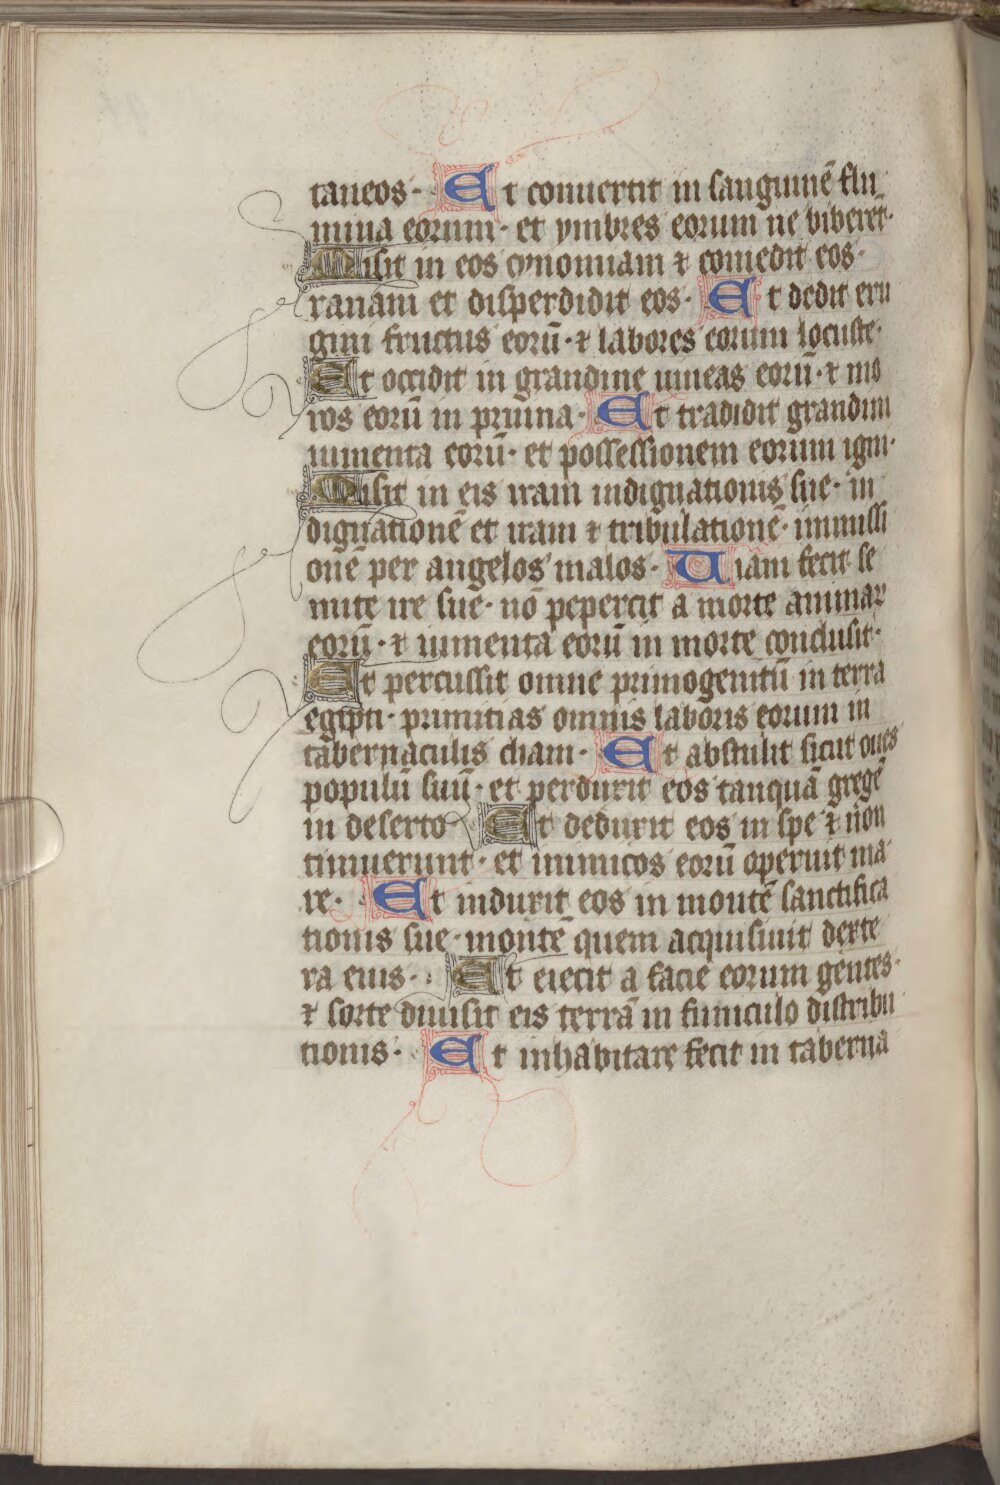 taneos · Et conuertit in sanguinē flu
mina eorum · et ymbres eorum ne biberēt ·
Misit in eos cynomiam ⁊ comedit eos ·
ranam et disperdidit eos · Et dedit eru
gini fructus eorū · ⁊ labores eorum locuste ·
Et occidit in grandine uineas eorū · ⁊ mo
ros eorū in pruina · Et tradidit grandini
iumenta eorū · et possessionem eorum igni ·
Misit in eis iram indignationis sue · in
dignationē et iram ⁊ tribulationē · immissi
onē per angelos malos · Uiam fecit se
mite ire sue · nō pepercit a morte animaꝝ
eorū · ⁊ iumenta eorū in morte conclusit ·
Et percussit omne primogenitū in terra
egipti · primitias omnis laboris eorum in
tabernaculis cham · Et abstulit sicut oues
populū suū · et perduxit eos tanquā gregē
in deserto · Et deduxit eos in spe ⁊ non
timuerunt · et inimicos eorū operuit ma
re · Et induxit eos in montē sanctifica
tionis sue · montē quem acquisiuit dexte
ra eius · Et eiecit a facie eorum gentes ·
⁊ sorte diuisit eis terrā in funiculo distribu
tionis · Et inhabitare fecit in taberna